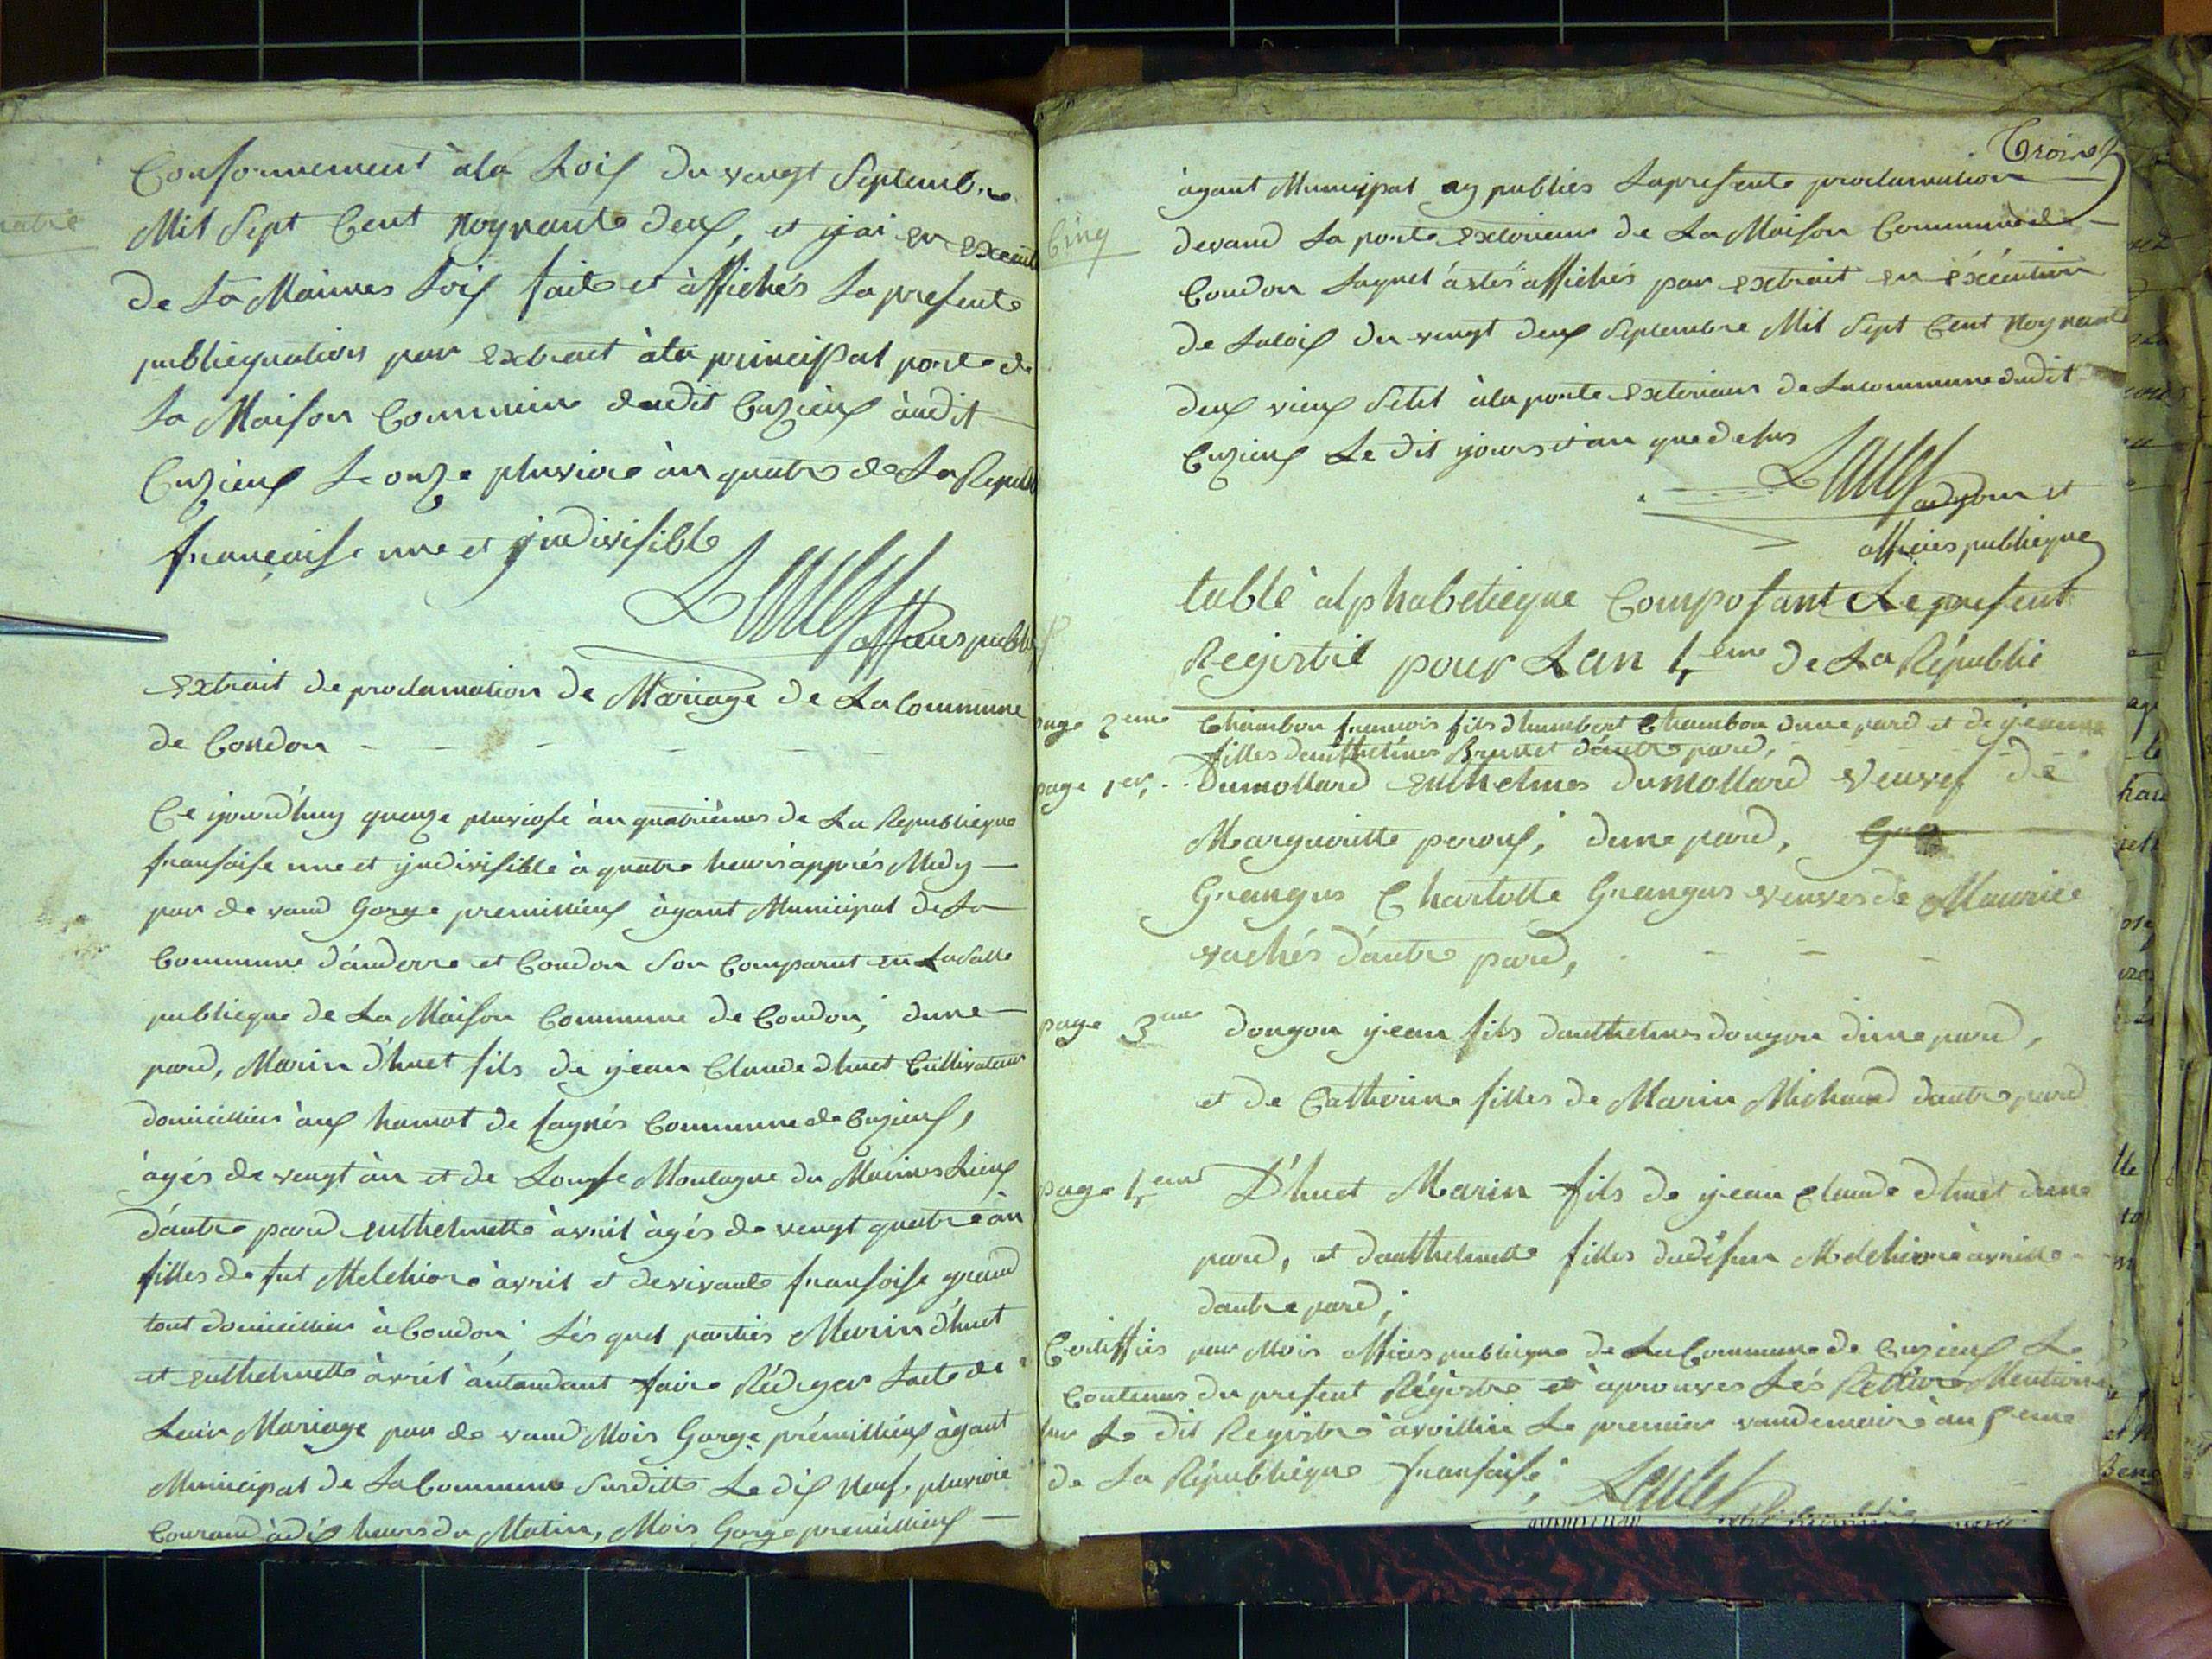 Conformement àla Loix du vengt Septembre
Mil Sept Cent Noynante deux, et y jai en execut
de La Maimes Loix fait et àffichés La presente
publiequation par Extrait àla principal porte de
La Maison Commune dudit Cuzieux àudit
Cuzieux Le onze pluviore àn quatre de La Republ
francaise une et yndivisible
officies publi
Extrait de proclamation de Mariage de La Commune
de Condon
Ce yourdhuy quenze pluviose àn quatriémes de La Republieque
fransaise une et yndivisible à quatre heurs apprés Midy
par de vand Gorge premillieux àgant Municipal de La
Commune d'anderre et Condon Son Comparut en La Salle
publieque de La Maison Commune de Condon, dune
pard, Marin d'huet fils de yean Claude dhuet Cultivateur
domicillier àux hamot de fagnés Commune de Cuzieux,
àgés de vengt àn et de Louise Montagne du Maimes Lieux
dautre pard enthelmette àvril àgés de vengt quatre àn
filles de fut Melchiore àvril et de vivante fransoise grand
tout domicillier à Condon, Lés quel partiés Marin d'huet
et enthelmette àvril àntandant faire Rédiger Lacte de
Leur Mariage par de vand Mois Gorge prémillieux àgant
Municipal de La Commune Surditte Le dix Neuf pluvioie
Courand à dix heurs du Matin, Mois Gorge premillieux
Troix
Cinq
àgant Municipal ay publies Lapresente proclamation
devand La porte Exterieure de La Maison Commune de
Condon Laquel à étés affichés par extrait en éxécution
de Laloix du vengt deux Septembre Mil Sept Cent Noynante
deux vieux Stil àla porte Exterieur de La commune dudit
Cuzieux Le dit yours et an que desus
adyoin et
officies publieque
table àlphabetieque Composant Le present
Registre pour Lan 4eme de La Républie
page 2eme Chambon francois fils dhumbert Chambon dune pard et de yeanne
filles danthelmes Brunet dautre pard,
page 1er, Dumollard enthelmes dumollard Veuvef de
Margueritte peroux, dune pard,
Grangus Charlotte Grangus veuves de Maurice
vachés d'autre pard,
page 3eme dougon yean fils danthelmes dougon dune pard,
et de Catherine filles de Marin Michaud dautre pard
page 4eme D'huet Marin fils de yean Claude dhuet dune
pard, et danthelmette filles dudéfun Melchiore àvrille
dautre pard,
Certiffiés par Mois officies publieque de La Commune de Cuzieux Le
Contenus du present Régistre et àprouves Lés
sur Le dit Registre à Le premier vandemaire àn 5eme
de La Républieque fransaise,